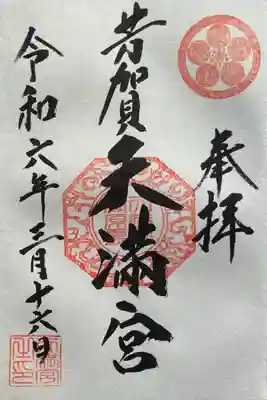 奉拝
芳賀天満宮
令和六年三月十六日